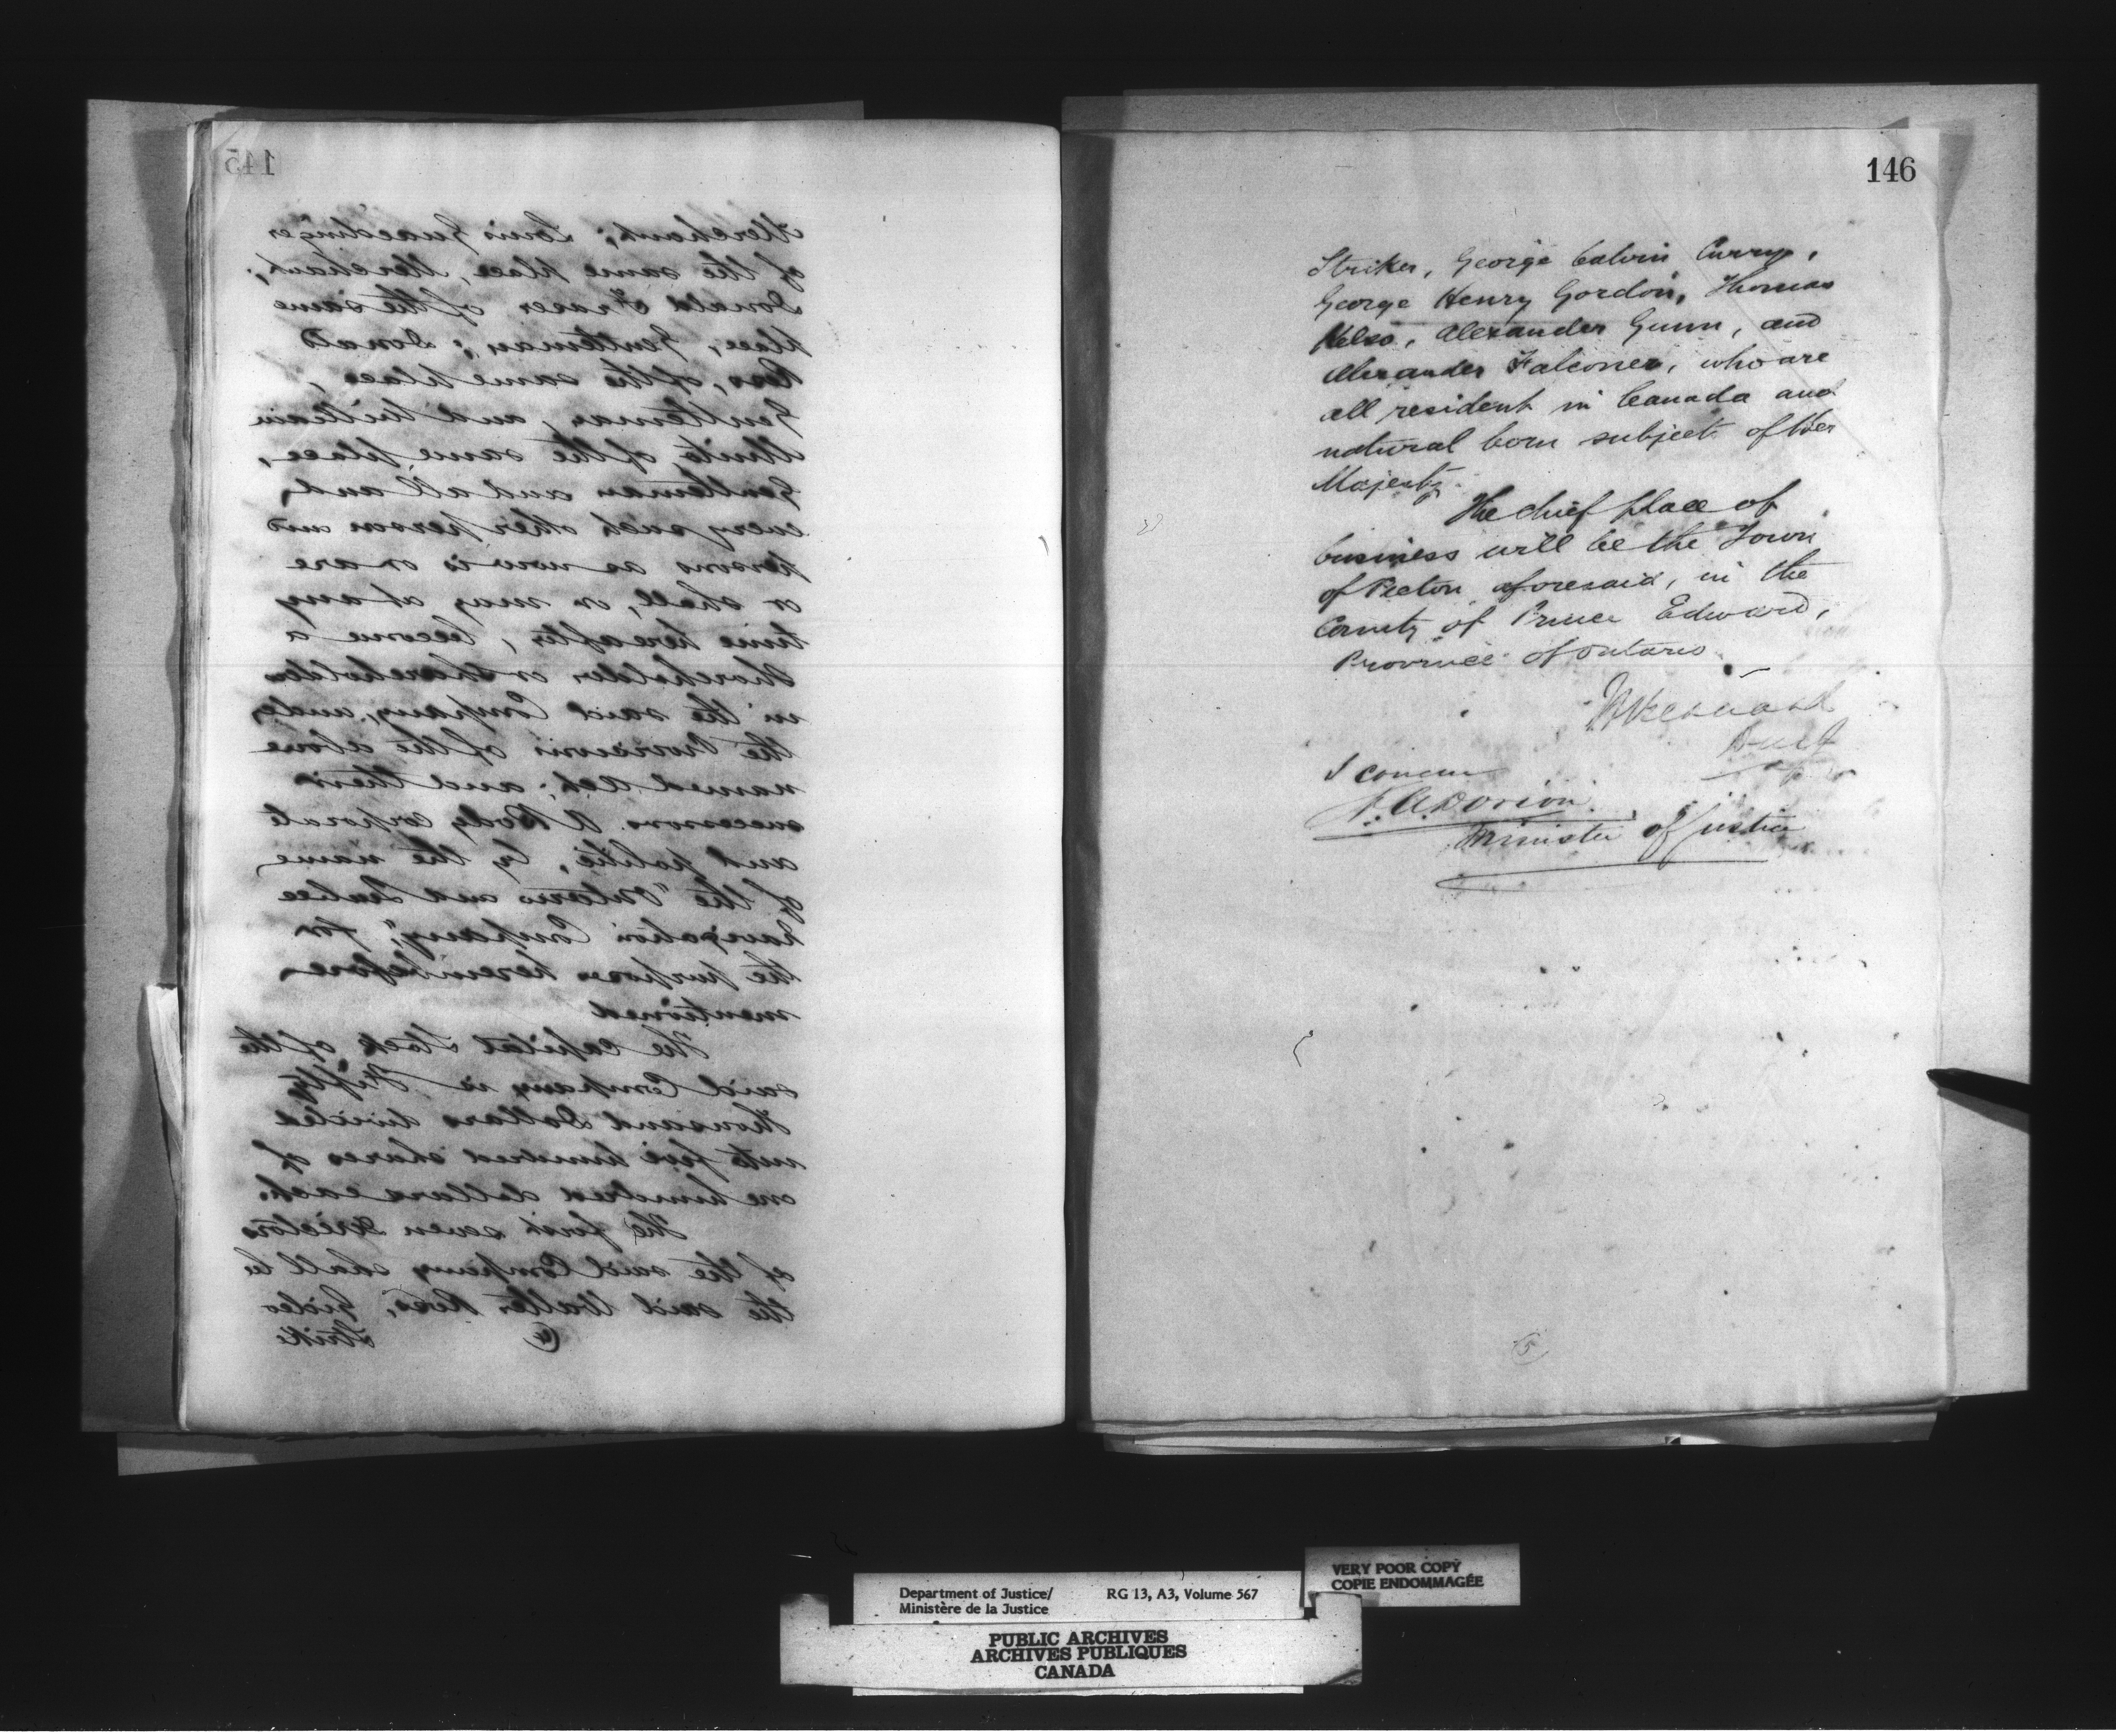 145
Merchant; Louis Gnaedinger
of the same place, Merchant;
Donald Fraser of the same
place, Gentleman; Donald
Ross, of the same place,
Gentleman, and William
of the same place,
Gentleman and all and
every such other person and
persons as now is or are
or shall, or may at any
time hereafter, become a
shareholder or shareholders
in the said Company, under
the provisions of the above
named Act; and their
successors a Body corporate
and politic, by the name
of the "Ontario and Quebec
Navigation Company," for
the purposes hereinbefore
mentioned
The capital Stock of the
said Company is Fifty
thousand Dollars divided
into five hundred shares of
one hundred dollars each.
The first seven directors
of the said Company shall be
the said Walter Ross, Gideo
Strike
146
Striker, George Calvin Curry,
George Henry Gordon, Thomas
Kelso, Alexander Gunn, and
Alexander Falconer, who are
all resident in Canada and
natural born subjects of Her
Majesty.
The chief place of
business will be the Town
of Picton aforesaid, in the
County of Prince Edward,
Province of Ontario
H Bernard
I concur
A. A. Dorion
Minister of Justice
5
Department of Justice/
Ministère de la Justice
RG 13, A3, Volume 567
VERY POOR COPY
COPIE ENDOMMAGÉE
PUBLIC ARCHIVES
ARCHIVES PUBLIQUES
CANADA